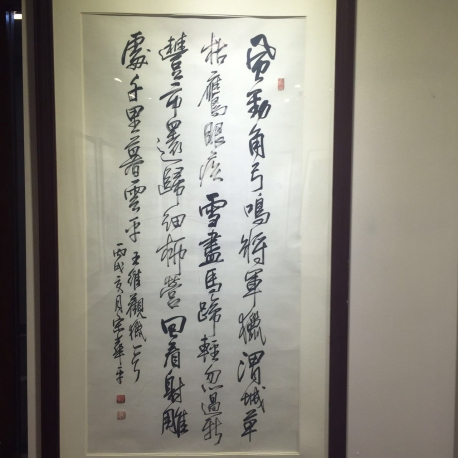 風勁角弓鳴將軍獵渭城草
枯鷹眼疾雪盡馬蹄輕忽過新
豐市還歸細柳營回看射雕
處千里暮雲平 王維觀獵
丙戌亥月宋華平